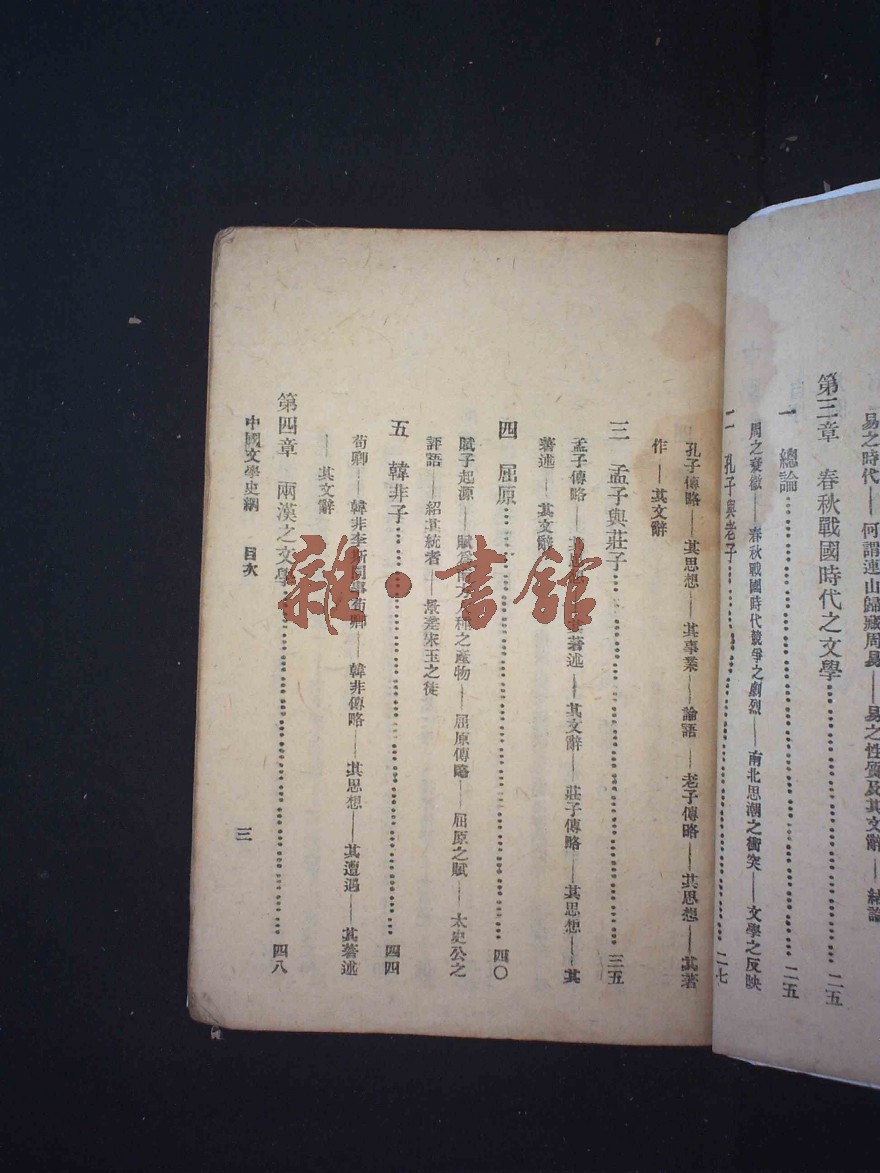 易之時代——何謂連山歸藏周易——易之性質及其文辭——結論
第三章 春秋戰國時代之文學……二五
一 總論……二五
周之衰微——春秋戰國時代競爭之劇烈——南北思潮之衝突——文學之反映
二 孔子與老子……二七
孔子傳略——其思想——其事業——論語——老子傳略——其思想——其著
作——其文辭
三 孟子與莊子……三五
孟子傳略——其著述——其文辭——莊子傳略——其思想——其
著述——其文辭
四 屈原……四〇
賦予起源——賦爲南方人種之產物——屈原傳略——屈原之賦——太史公之
評語——紹其統者——景差宋玉之徒
五 韓非子……四四
荀卿——韓非李斯同事荀卿——韓非傳略——其思想——其遭遇——其著述
——其文辭
第四章 兩漢之文學……四八
中國文學史綱 目次 三
雜·書館